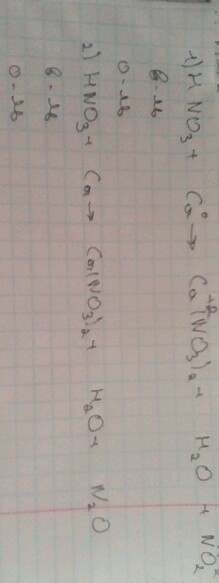 1) HNO₃ + Ca⁰ → Ca⁺²(NO₃)₂ + H₂O + NO₂
в-ль
о-ль
2) HNO₃ + Ca → Ca(NO₃)₂ + H₂O + N₂O
в-ль
о-ль